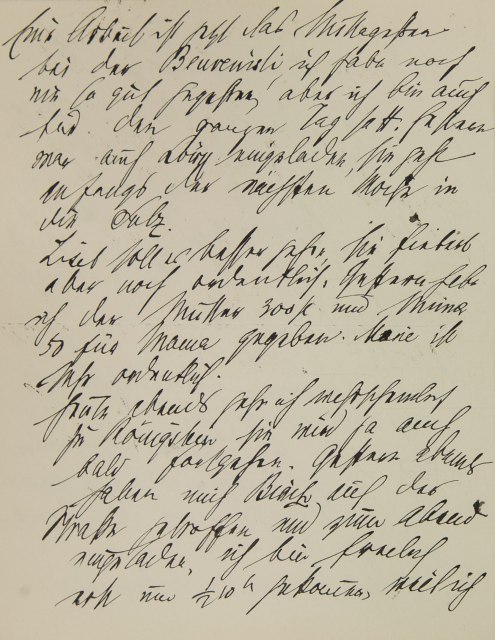 Eine Arbeit ist jetzt das Mittagessen
bei der Benvenisti, ich habe noch
nie so gut gegessen, aber ich bin auch
für den ganzen Tag satt. Gestern
war auch eingeladen, sie geht
anfangs der nächsten Woche in
die Sulz.
Liesel soll es besser gehn, sie fiebert
aber noch ordentlich. Gestern habe
ich der Mutter 300 K und Minna
50 für Mama gegeben. Marie ist
sehr ordentlich.
Heute abends gehe ich
zu Königstein, sie wird ja auch
bald fortgehen. Gestern abends
haben mich auf der
Straße getroffen und zum Abend
eingeladen, ich bin freilich
erst um ½10 h gekommen, weil ich